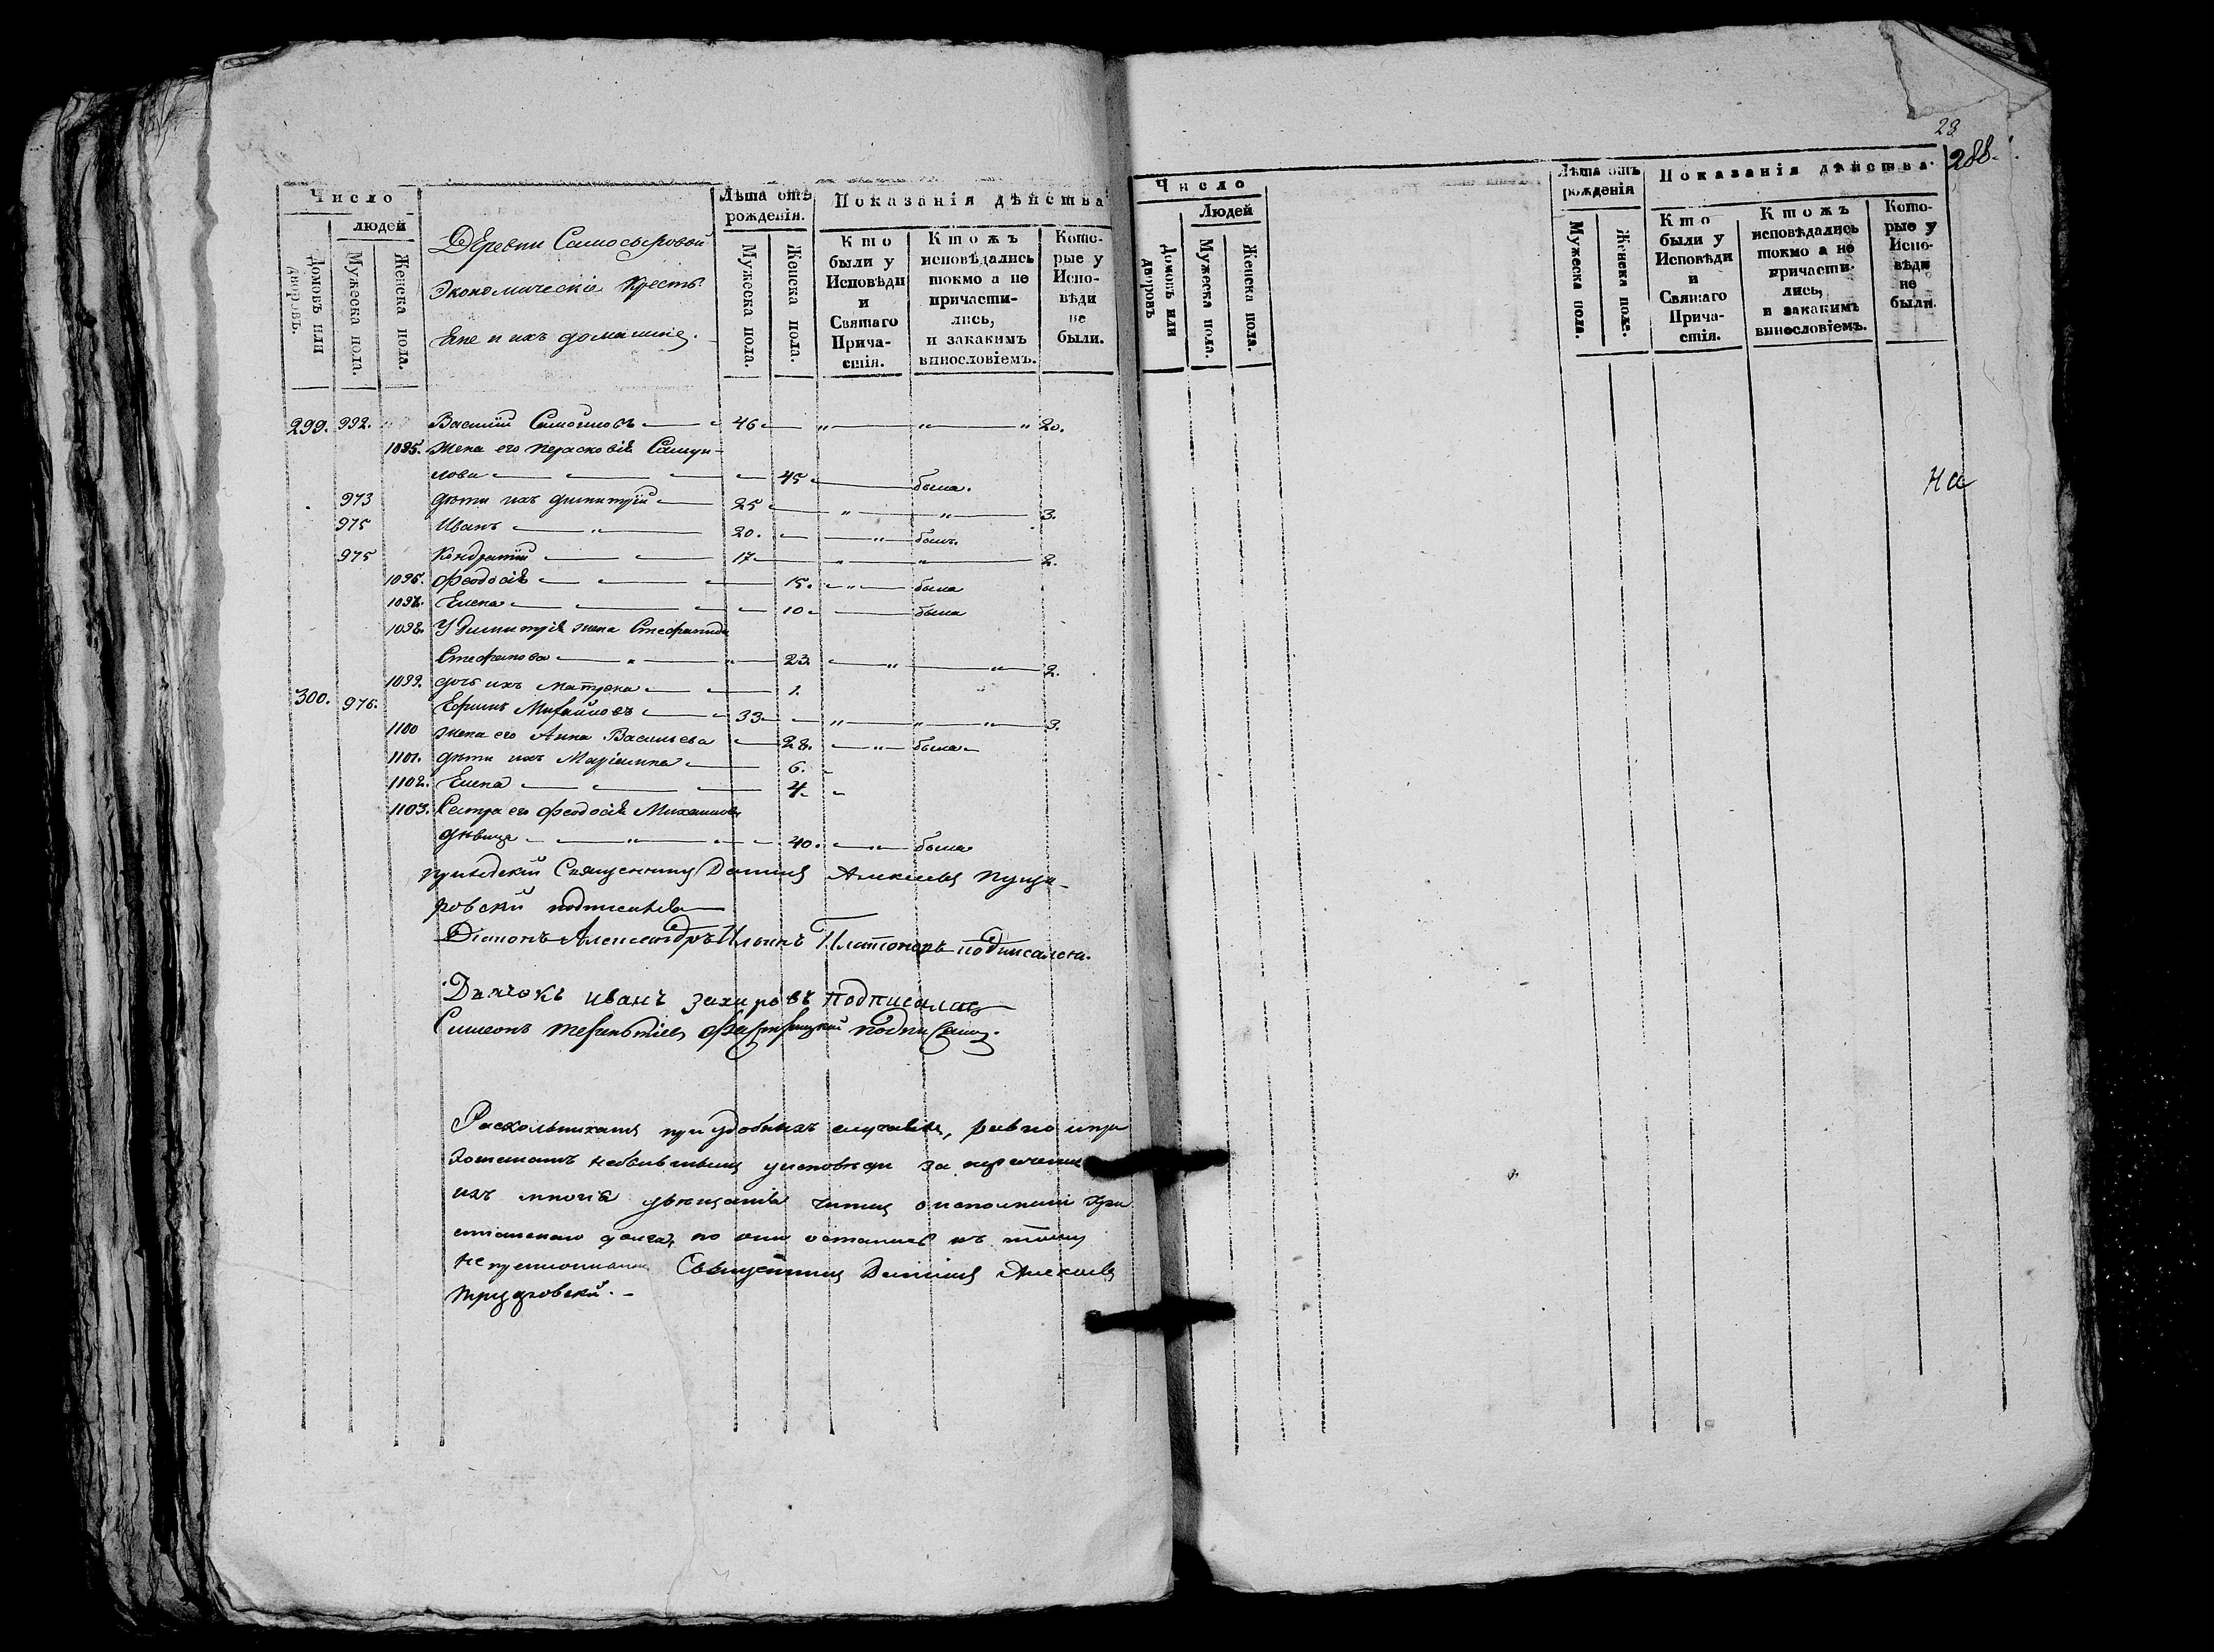 Число
людей
Домовъ или дворовъ.
Мужеска пола.
Женска пола.
Деревни Самосыровой
Экономическіе Кресть
яне и ихъ домашніе.
Лѣта отъ рожденія.
Мужеска пола.
Женска пола.
Показанія дѣйства
Кто были у Исповѣди и Святаго Причастія.
Ктожъ исповѣдались токмо а не причастились, и закакимъ винословіемъ.
Которые у Исповѣди не были.
299. 992. Василій 46 " " " 20.
1095. Жена его Парасковія
лова 45 была.
973 дѣти ихъ Димитрій 25 " " 3.
975 Иванъ " 20. " былъ.
975 Кондратій 17 " " 2.
1096. Феодосія 15. " была
1097. Елена 10 была
1098. У Димитрія жена Стефанида
Стефанова " " 23. " " 2.
1099. дочь ихъ Матрена 1.
300. 976. Ефимъ Михайловъ 33 " " " 3.
1100 жена его Анна Васильева 28. " была
1101. дѣти ихъ Маріамна 6.
1102. Елена 4.
1103. Сестра его Феодосія Михаилова
дѣвица " 40. " была
Священникъ Даніилъ Алексѣевъ
подписался
Діаконъ Александръ Ильинъ Платоновъ подписался.
Дьячокъ Иванъ Захаровъ подписался
Симеонъ подписался.
Раскольникамъ при удобныхъ случаяхъ, равно и при
небывшимъ у исповѣди за
ихъ многія увѣщанія чинилъ о исполненіи Хри
стіанскаго долга, но они остались къ тому
Священникъ Даніилъ Алексѣевъ
Число
Людей
Домовъ или дворовъ
Мужеска пола.
Женска пола.
Лѣта отъ рожденія
Мужеска пола.
Женска поле.
Показанія дѣйства.
Кто были у Исповѣди и Святаго Причастія.
Ктожъ исповѣдались токмо а не причастились, и закакимъ винословіемъ.
Которые у Исповѣди не были.
23
288.
На